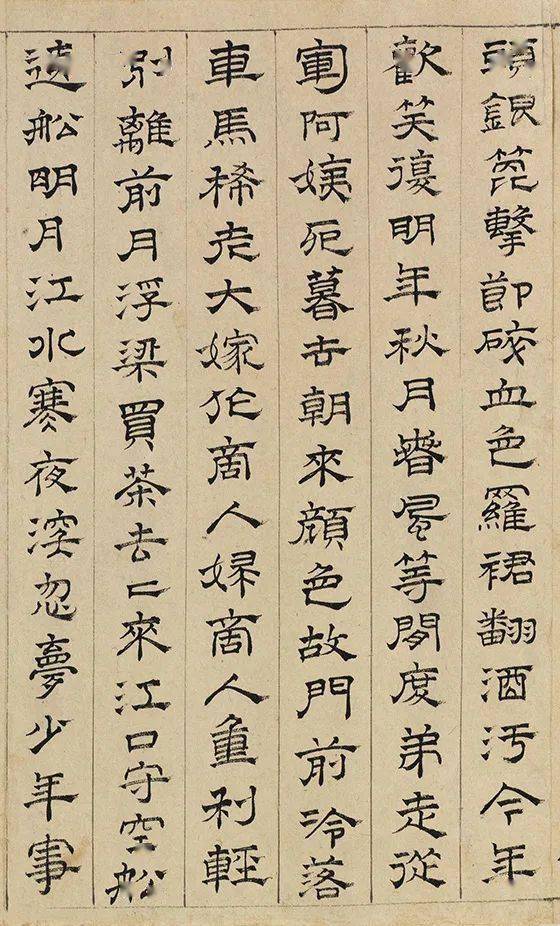 頭銀箆擊節碎血色羅裙翻酒汚今年
歡笑復明年秋月春風等閒度弟走從
軍阿姨死暮去朝來顏色故門前冷落
車馬稀老大嫁作商人婦商人重利輕
別離前月浮梁買茶去〻來江口守空船
遶船明月江水寒夜深忽夢少年事